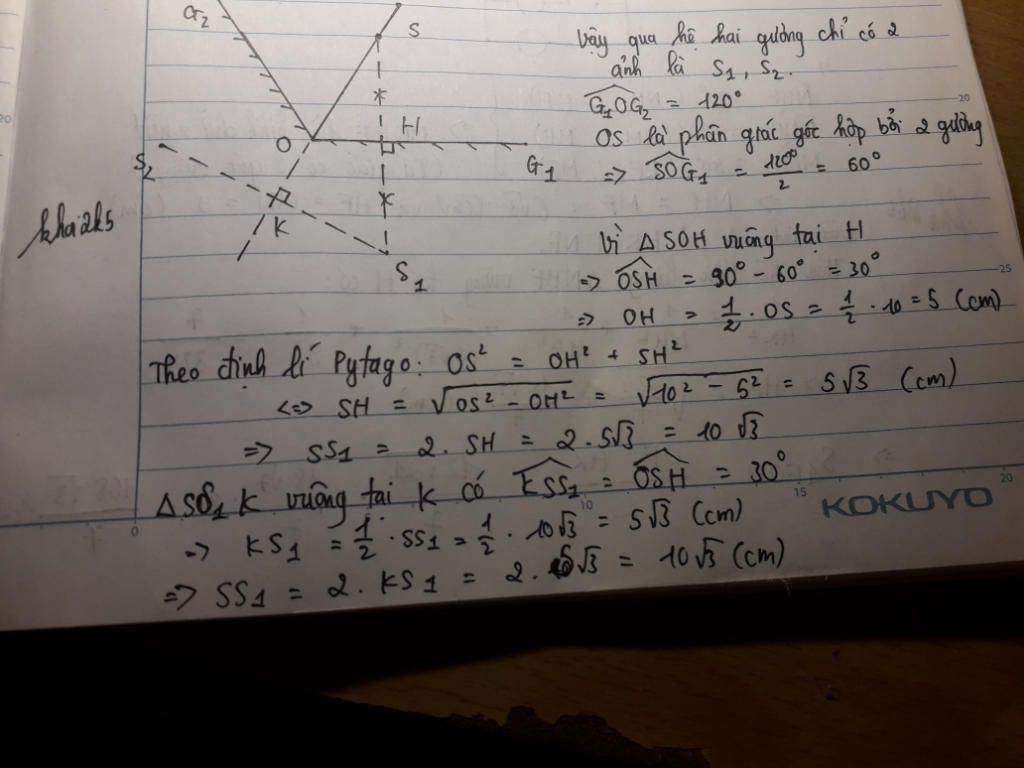 G2
S
O
H
G1
S2
K
S1
khai2k5
Vậy qua hệ hai gương chỉ có 2
ảnh là S1, S2.
G1OG2 = 120°
OS là phân giác góc hợp bởi 2 gương
=> SOG1 = 120°/2 = 60°
Vì Δ SOH vuông tại H
=> OSH = 90° - 60° = 30°
=> OH = 1/2 . OS = 1/2 . 10 = 5 (cm)
Theo định lí Pytago: OS² = OH² + SH²
<=> SH = √(OS² - OH²) = √(10² - 5²) = 5√3 (cm)
=> SS1 = 2. SH = 2. 5√3 = 10√3
Δ SS1K vuông tại K có KSS1 = OSH = 30°
=> KS1 = 1/2 . SS1 = 1/2 . 10√3 = 5√3 (cm)
=> SS1 = 2. KS1 = 2. 5√3 = 10√3 (cm)
KOKUYO
20
20
25
0
10
15
20